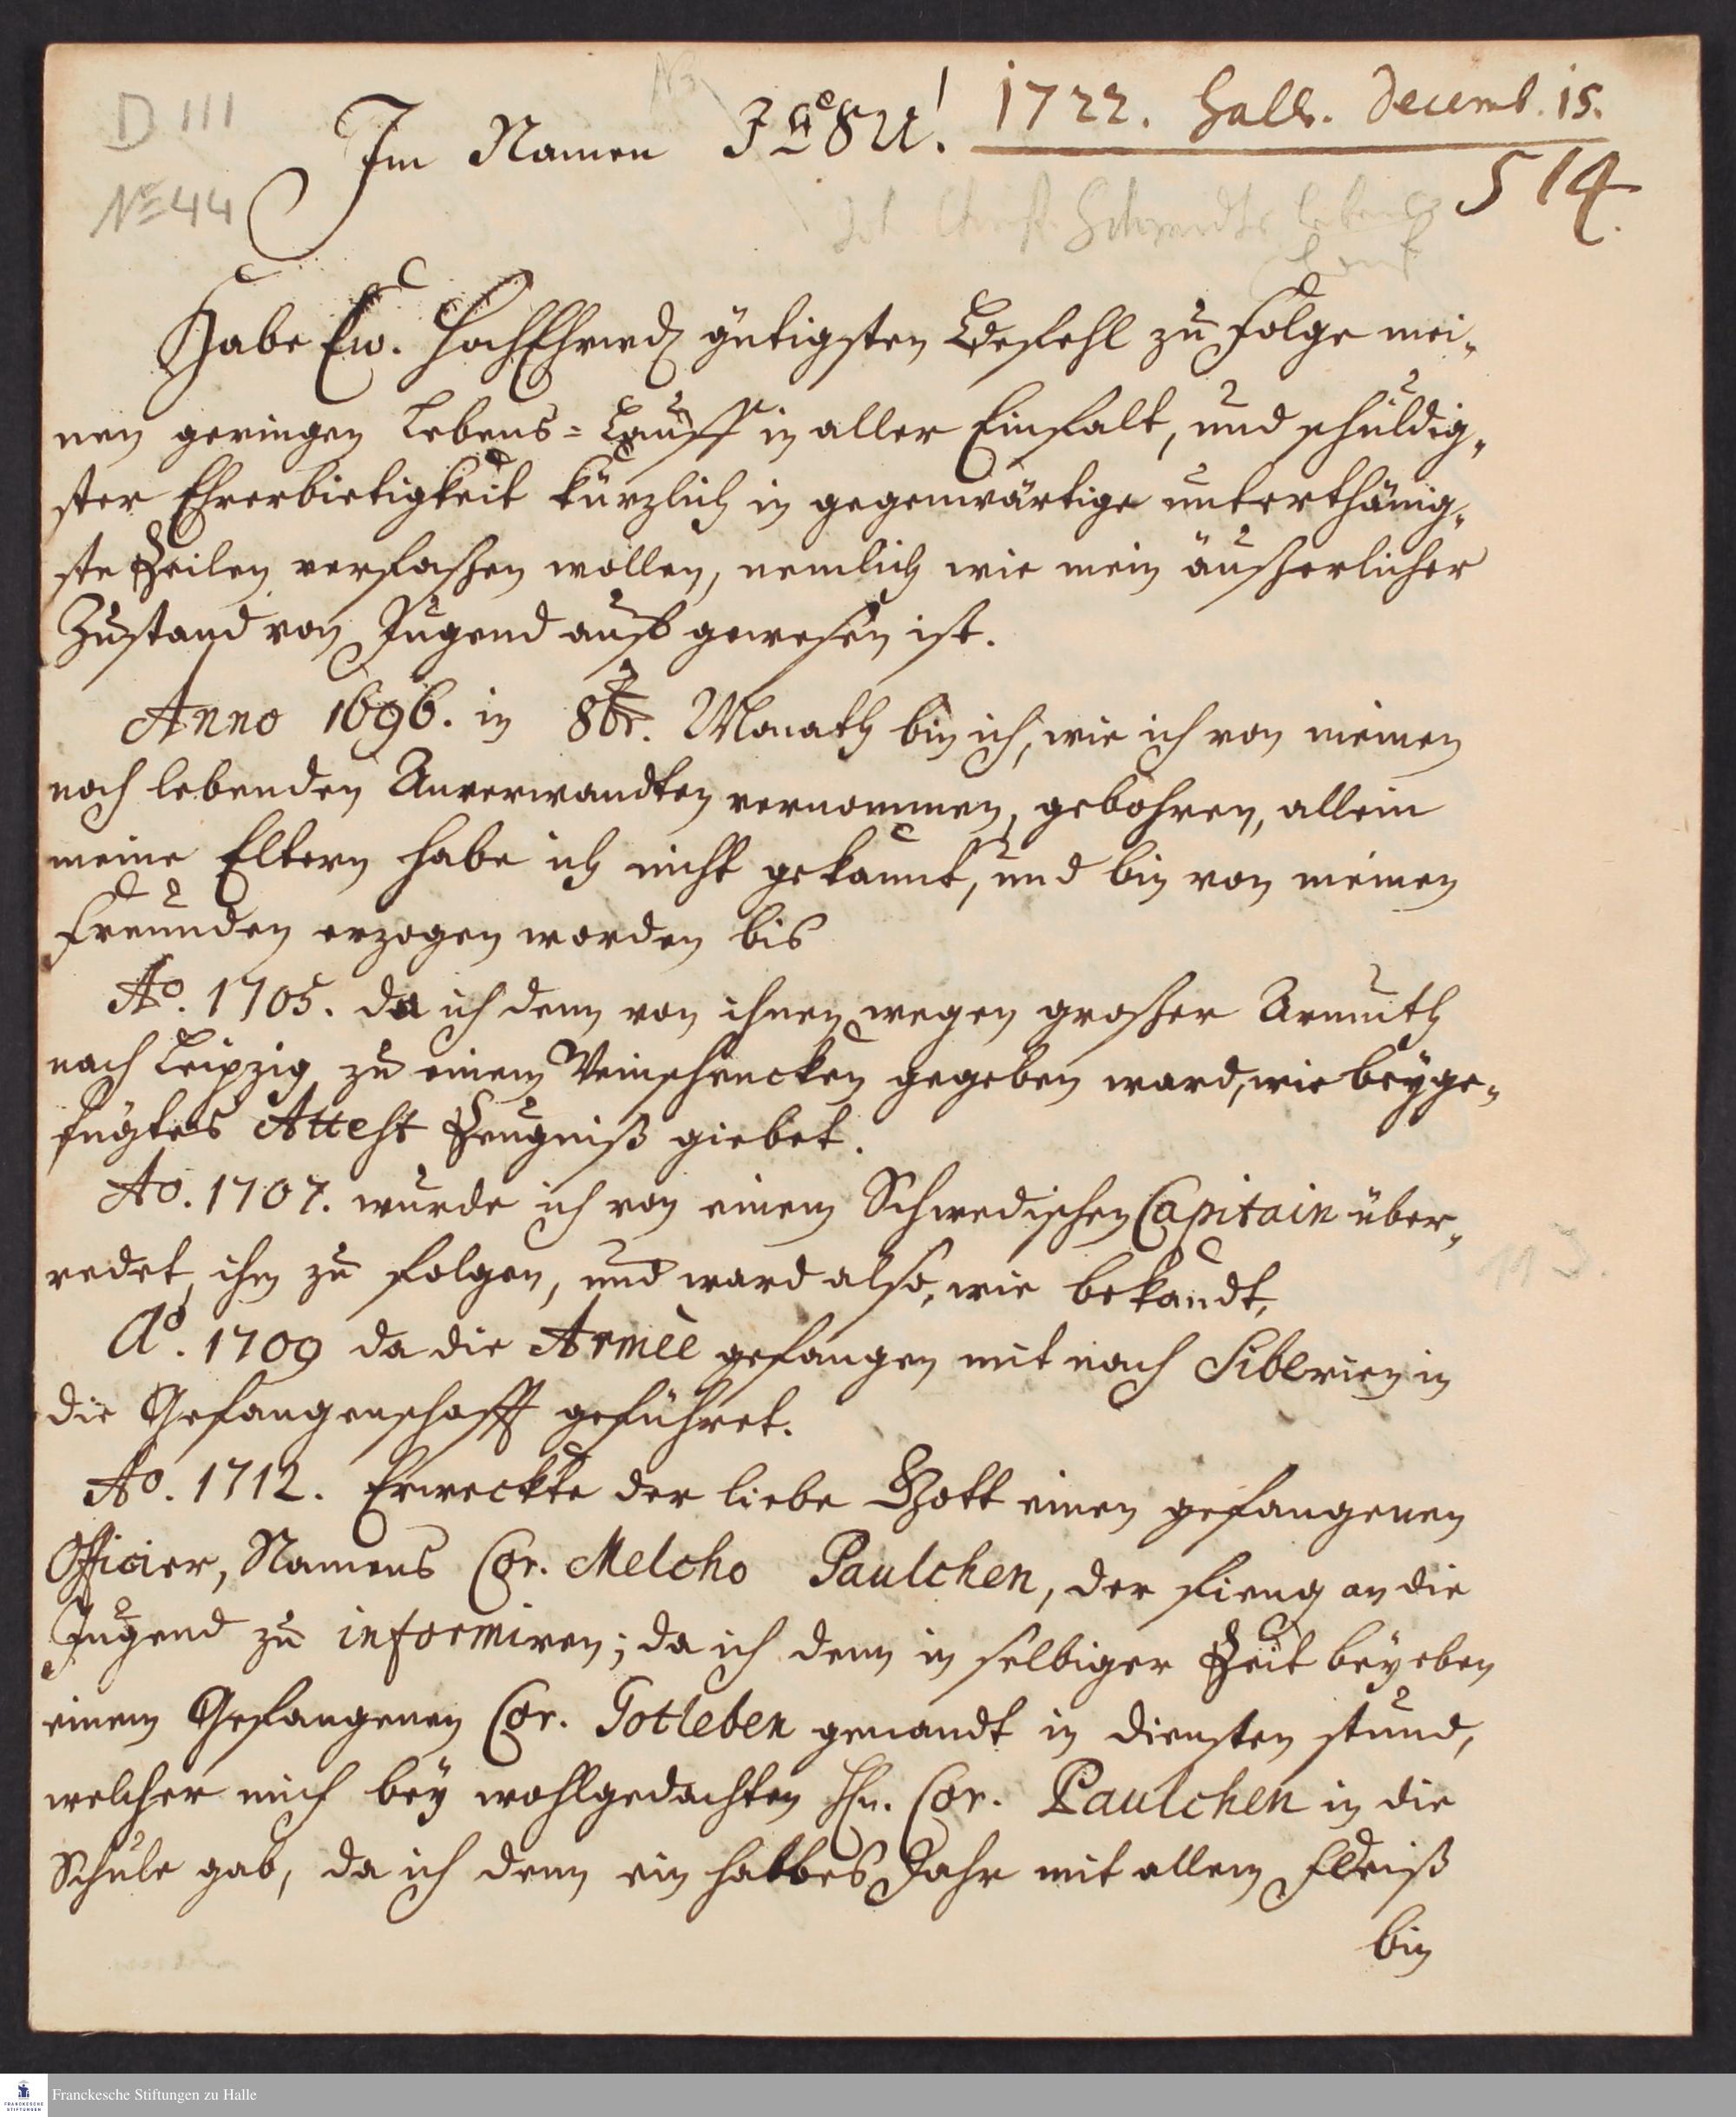 D 111
No 44
Im Namen JESU!
1722. Halle. Decemb. 15.
514.
Joh. Christ. Schmidts Lebens
Lauf
Habe Ew. HochEhrwd. gütigsten Befehl zu Folge mei-
nen geringen Lebens-Lauff in aller Einfalt, und schuldig-
ster Ehrerbietigkeit kürzlich in gegenwärtige unterthänig-
ste Zeilen verfaßen wollen, nemlich wie mein äußerlicher
Zustand von Jugend auf gewesen ist.
Anno 1696. in 8br. Monath bin ich, wie ich von meinen
noch lebenden Anverwandten vernommen, gebohren, allein
meine Eltern habe ich nicht gekannt, und bin von meinen
Freunden erzogen worden bis
Ao. 1705. da ich denn von ihnen wegen großer Armuth
nach Leipzig zu einem Weinschencken gegeben ward, wie beyge-
fügtes Attest Zeugniß giebet.
Ao. 1707. wurde ich von einem Schwedischen Capitain über-
redet, ihm zu folgen, und ward also, wie bekandt,
Ao. 1709 da die Armèe gefangen mit nach Siberien in
die Gefangenschafft geführet.
Ao. 1712. Erweckte der liebe Gott einen gefangenen
Officier, Namens Cor. Melcho Paulchen, der fieng an die
Jugend zu informiren; da ich denn in selbiger Zeit bey eben
einem Gefangenen Cor. Totleben genandt in diensten stund,
welcher mich bey wohlgedachten Hn. Cor. Paulchen in die
Schule gab, da ich denn ein halbes Jahr mit allem Fleiß
bin
113.
Franckesche Stiftungen zu Halle
FRANCKESCHE
STIFTUNGEN